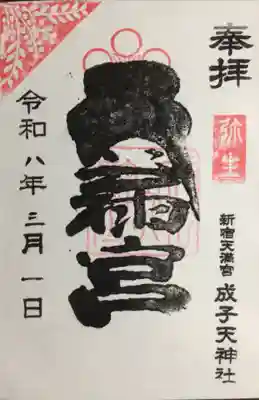 奉拝
弥生
新宿天満宮 成子天神社
天満宮
令和八年三月一日